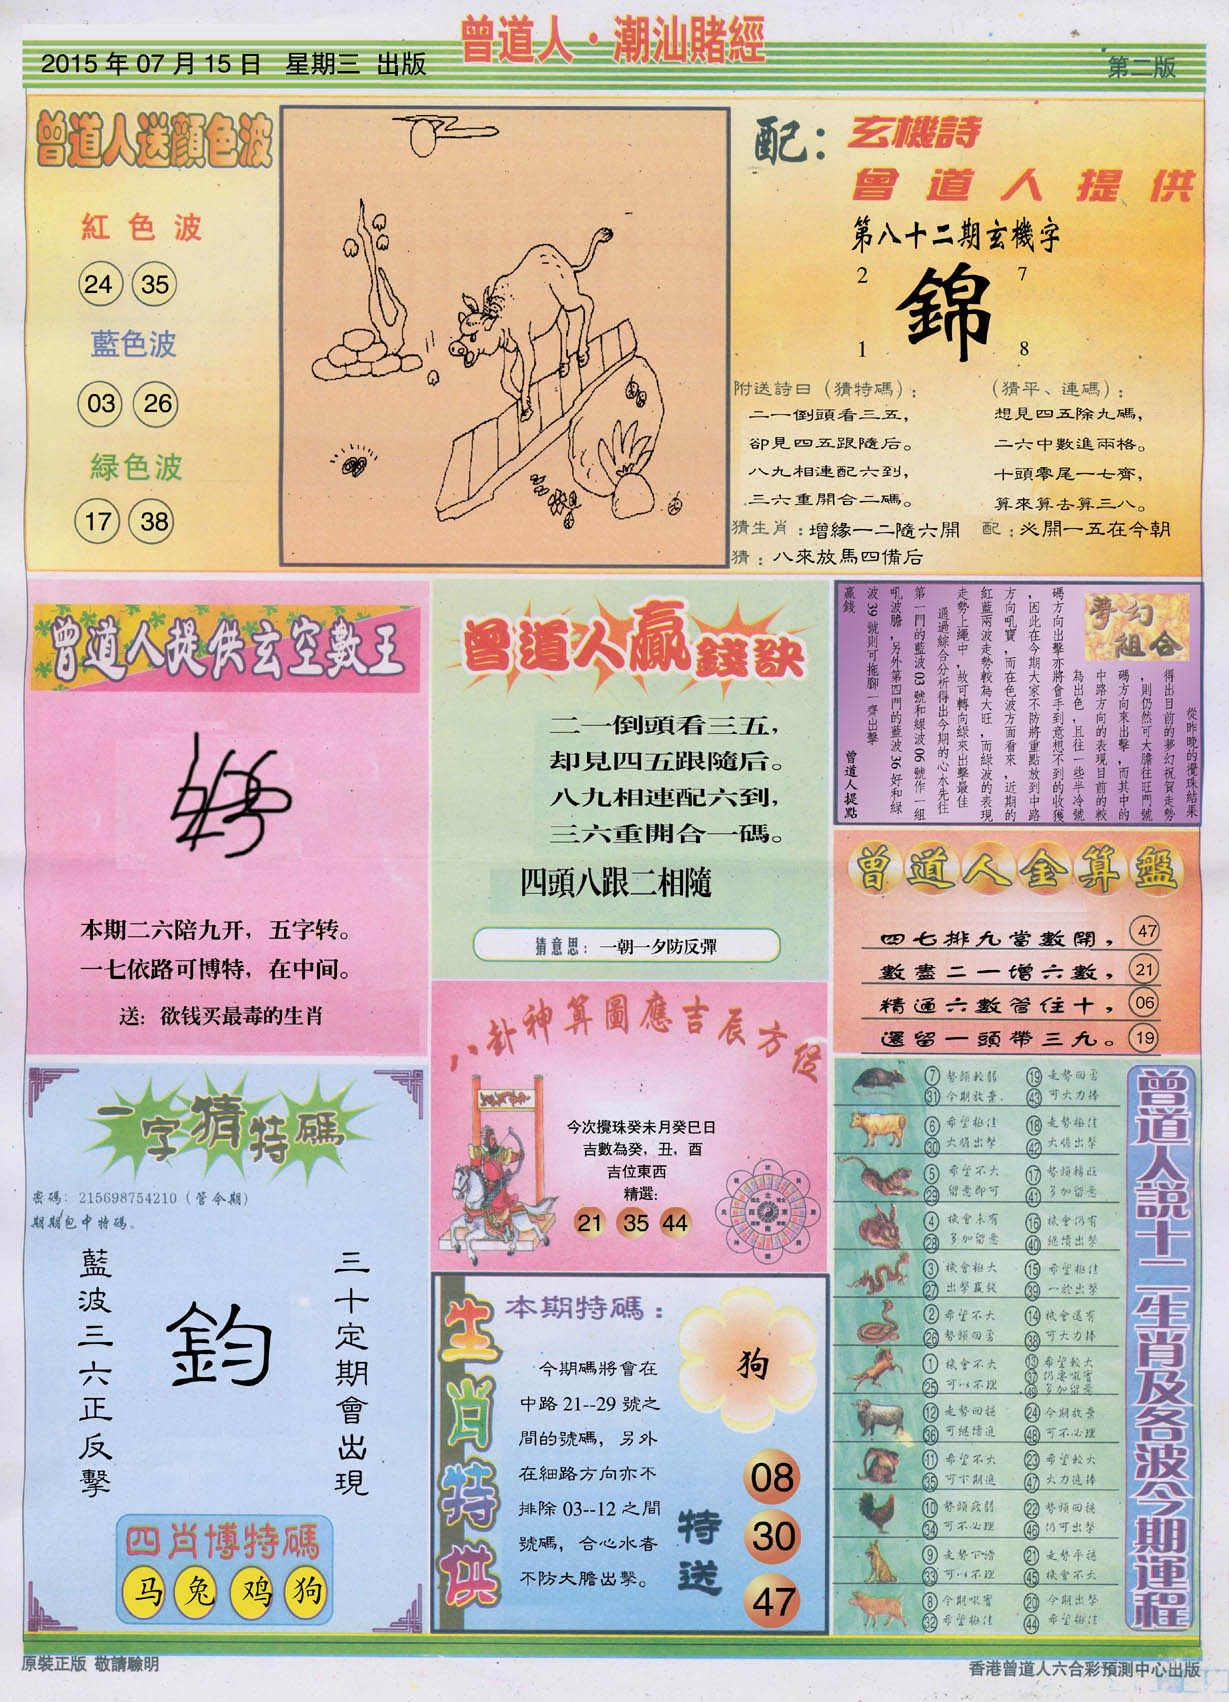 曾道人·潮汕賭經
2015年07月15日 星期三 出版
第二版
曾道人送顏色波
紅色波
24 35
藍色波
03 26
緑色波
17 38
配：玄機詩
曾道人提供
第八十二期玄機字
2 7
錦
1 8
附送詩曰（猜特碼）：
二一倒頭看三五，
卻見四五跟隨后。
八九相連配六到，
三六重開合二碼。
（猜平、連碼）：
想見四五除九碼，
二六中數進兩格。
十頭零尾一七齊，
算來算去算三八。
猜生肖：增緣一二隨六開 配：必開一五在今朝
猜：八來放馬四備后
曾道人提供玄空數王
本期二六陪九开，五字转。
一七依路可博特，在中间。
送：欲钱买最毒的生肖
曾道人贏錢訣
二一倒頭看三五，
却見四五跟隨后。
八九相連配六到，
三六重開合一碼。
四頭八跟二相隨
猜意思：一朝一夕防反彈
夢幻
組合
從昨晚的攪珠結果
得出目前的夢幻祝賀走勢
，則仍然可大膽往旺門號
碼方向來出擊，而其中的
中路方向的表現目前的較
為出色，且往一些半冷號
碼方向出擊亦將會手到意想不到的收獲
，因此在今期大家不防將重點放到中路
方向吼寶，而在色波方面看來，近期的
紅藍兩波走勢較為大旺，而綠波的表現
走勢上繩中，故可轉向綠來出擊最佳
通過綜合分析得出今期的心水先往
第一門的藍波03號和綠波06號作一組
吼波膽，另外第四門的藍波36好和綠
波39號則可拖腳一齊出擊
贏錢
曾道人提點
曾道人金算盤
四七排九當數開， 47
數盡二一增六數， 21
精通六數管住十， 06
還留一頭帶三九。 19
八卦神算圖應吉辰方位
今次攪珠癸未月癸巳日
吉數為癸，丑，酉
吉位東西
精選：
21 35 44
一字猜特碼
密碼：215698754210（管今期）
期期包中特碼。
藍波三六正反擊
鈞
三十定期會出現
四肖博特碼
马 兔 鸡 狗
生肖特供
本期特碼：
狗
今期碼將會在
中路21--29號之
間的號碼，另外
在細路方向亦不
排除03--12之間
號碼，合心水者
不防大膽出擊。
特送
08
30
47
曾道人説十二生肖及各波今期運程
7 勢頭較弱 19 走勢回勇
31 今期放棄 43 可大力捧
6 希望極佳 18 走勢極佳
30 大膽出擊 42 大膽出擊
5 希望不大 17 勢頭轉旺
29 留意即可 41 多加留意
4 機會未有 16 機會仍有
28 多加留意 40 繼續出擊
3 機會極大 15 希望極佳
27 出擊贏錢 39 一於出擊
2 希望不大 14 機會還有
26 勢頭回勇 38 可大力捧
1 機會不大 13 希望較大
25 可以不理 37 仍要吸寶
49 多加留意
12 走勢回穩 24 今期放棄
36 可繼續追 48 可不必理
11 希望不大 23 希望較大
35 可下期追 47 大力追捧
10 勢頭疲弱 22 勢頭回穩
34 可不必理 46 仍可出擊
9 走勢下滑 21 走勢平穩
33 可以不理 45 機會不大
8 今期吸寶 20 今期出擊
32 希望極佳 44 希望極佳
原裝正版 敬請驗明
香港曾道人六合彩預測中心出版